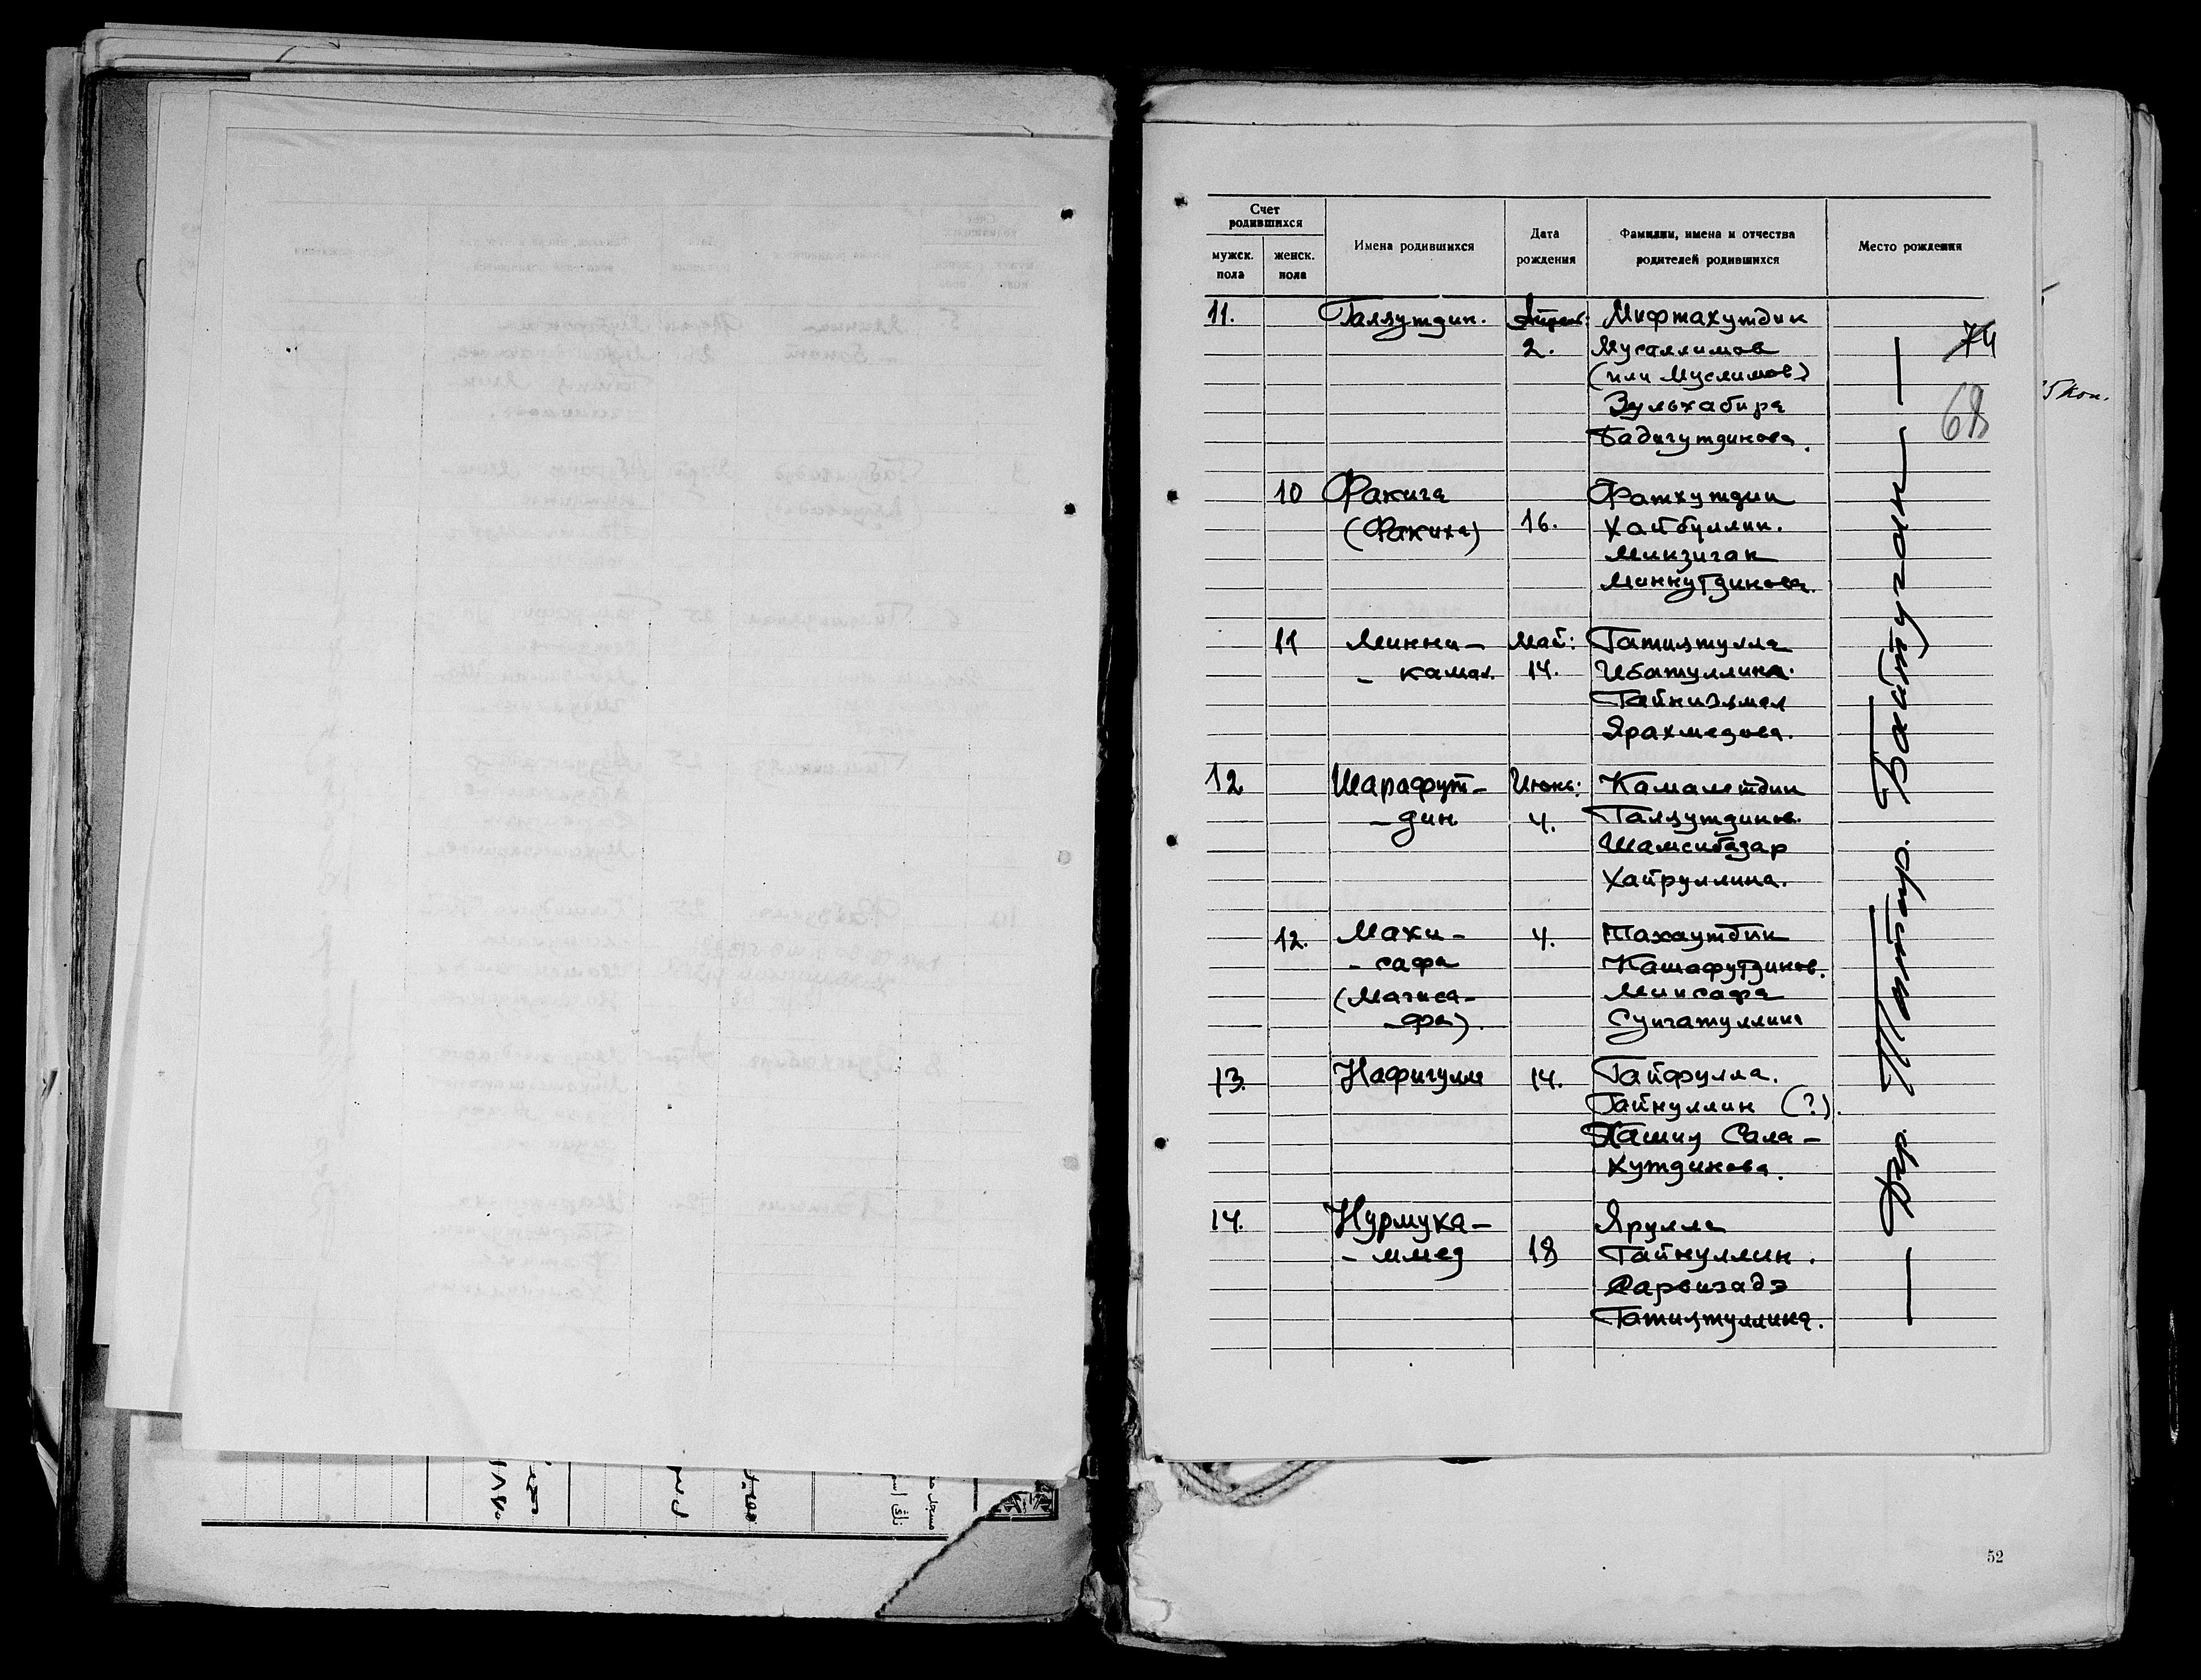 Счет
родившихся
мужск.
пола
женск.
пола
Имена родившихся
Дата
рождения
Фамилии, имена и отчества
родителей родившихся
Место рождения
11. Галяутдин. Апрель: Мифтахутдин
2. Мусаллимов
(или Муслимов)
Зульхабира
Бадигутдинова.
10 Факига Фатхутдин
(Факиха) 16. Хайбуллин.
Минзиган
Миннутдинова.
11 Минни- Май: Гатиятулла
- камал. 14. Ибатуллина.
Гайниэлмел
Ярахмедова.
12 Шарафут- Июнь: Камалетдин
- дин 4. Галяутдинов.
Шамсибадар
Хайруллина.
12. Махи- 4. Тахаутдин
- сафа Кашафутдинов.
(Магиса- Минсафа
- фа). Сунгатуллина
13. Нафигулла 14. Гайфулла.
Гайнуллин (?).
Сала-
хутдинова.
14. Нурмуха- Ярулла
- ммед 18 Гайнуллин.
Сарвизадэ
Гатиятуллина.
— Дер. Татар. Байтуган —
74
68
5 коп.
52